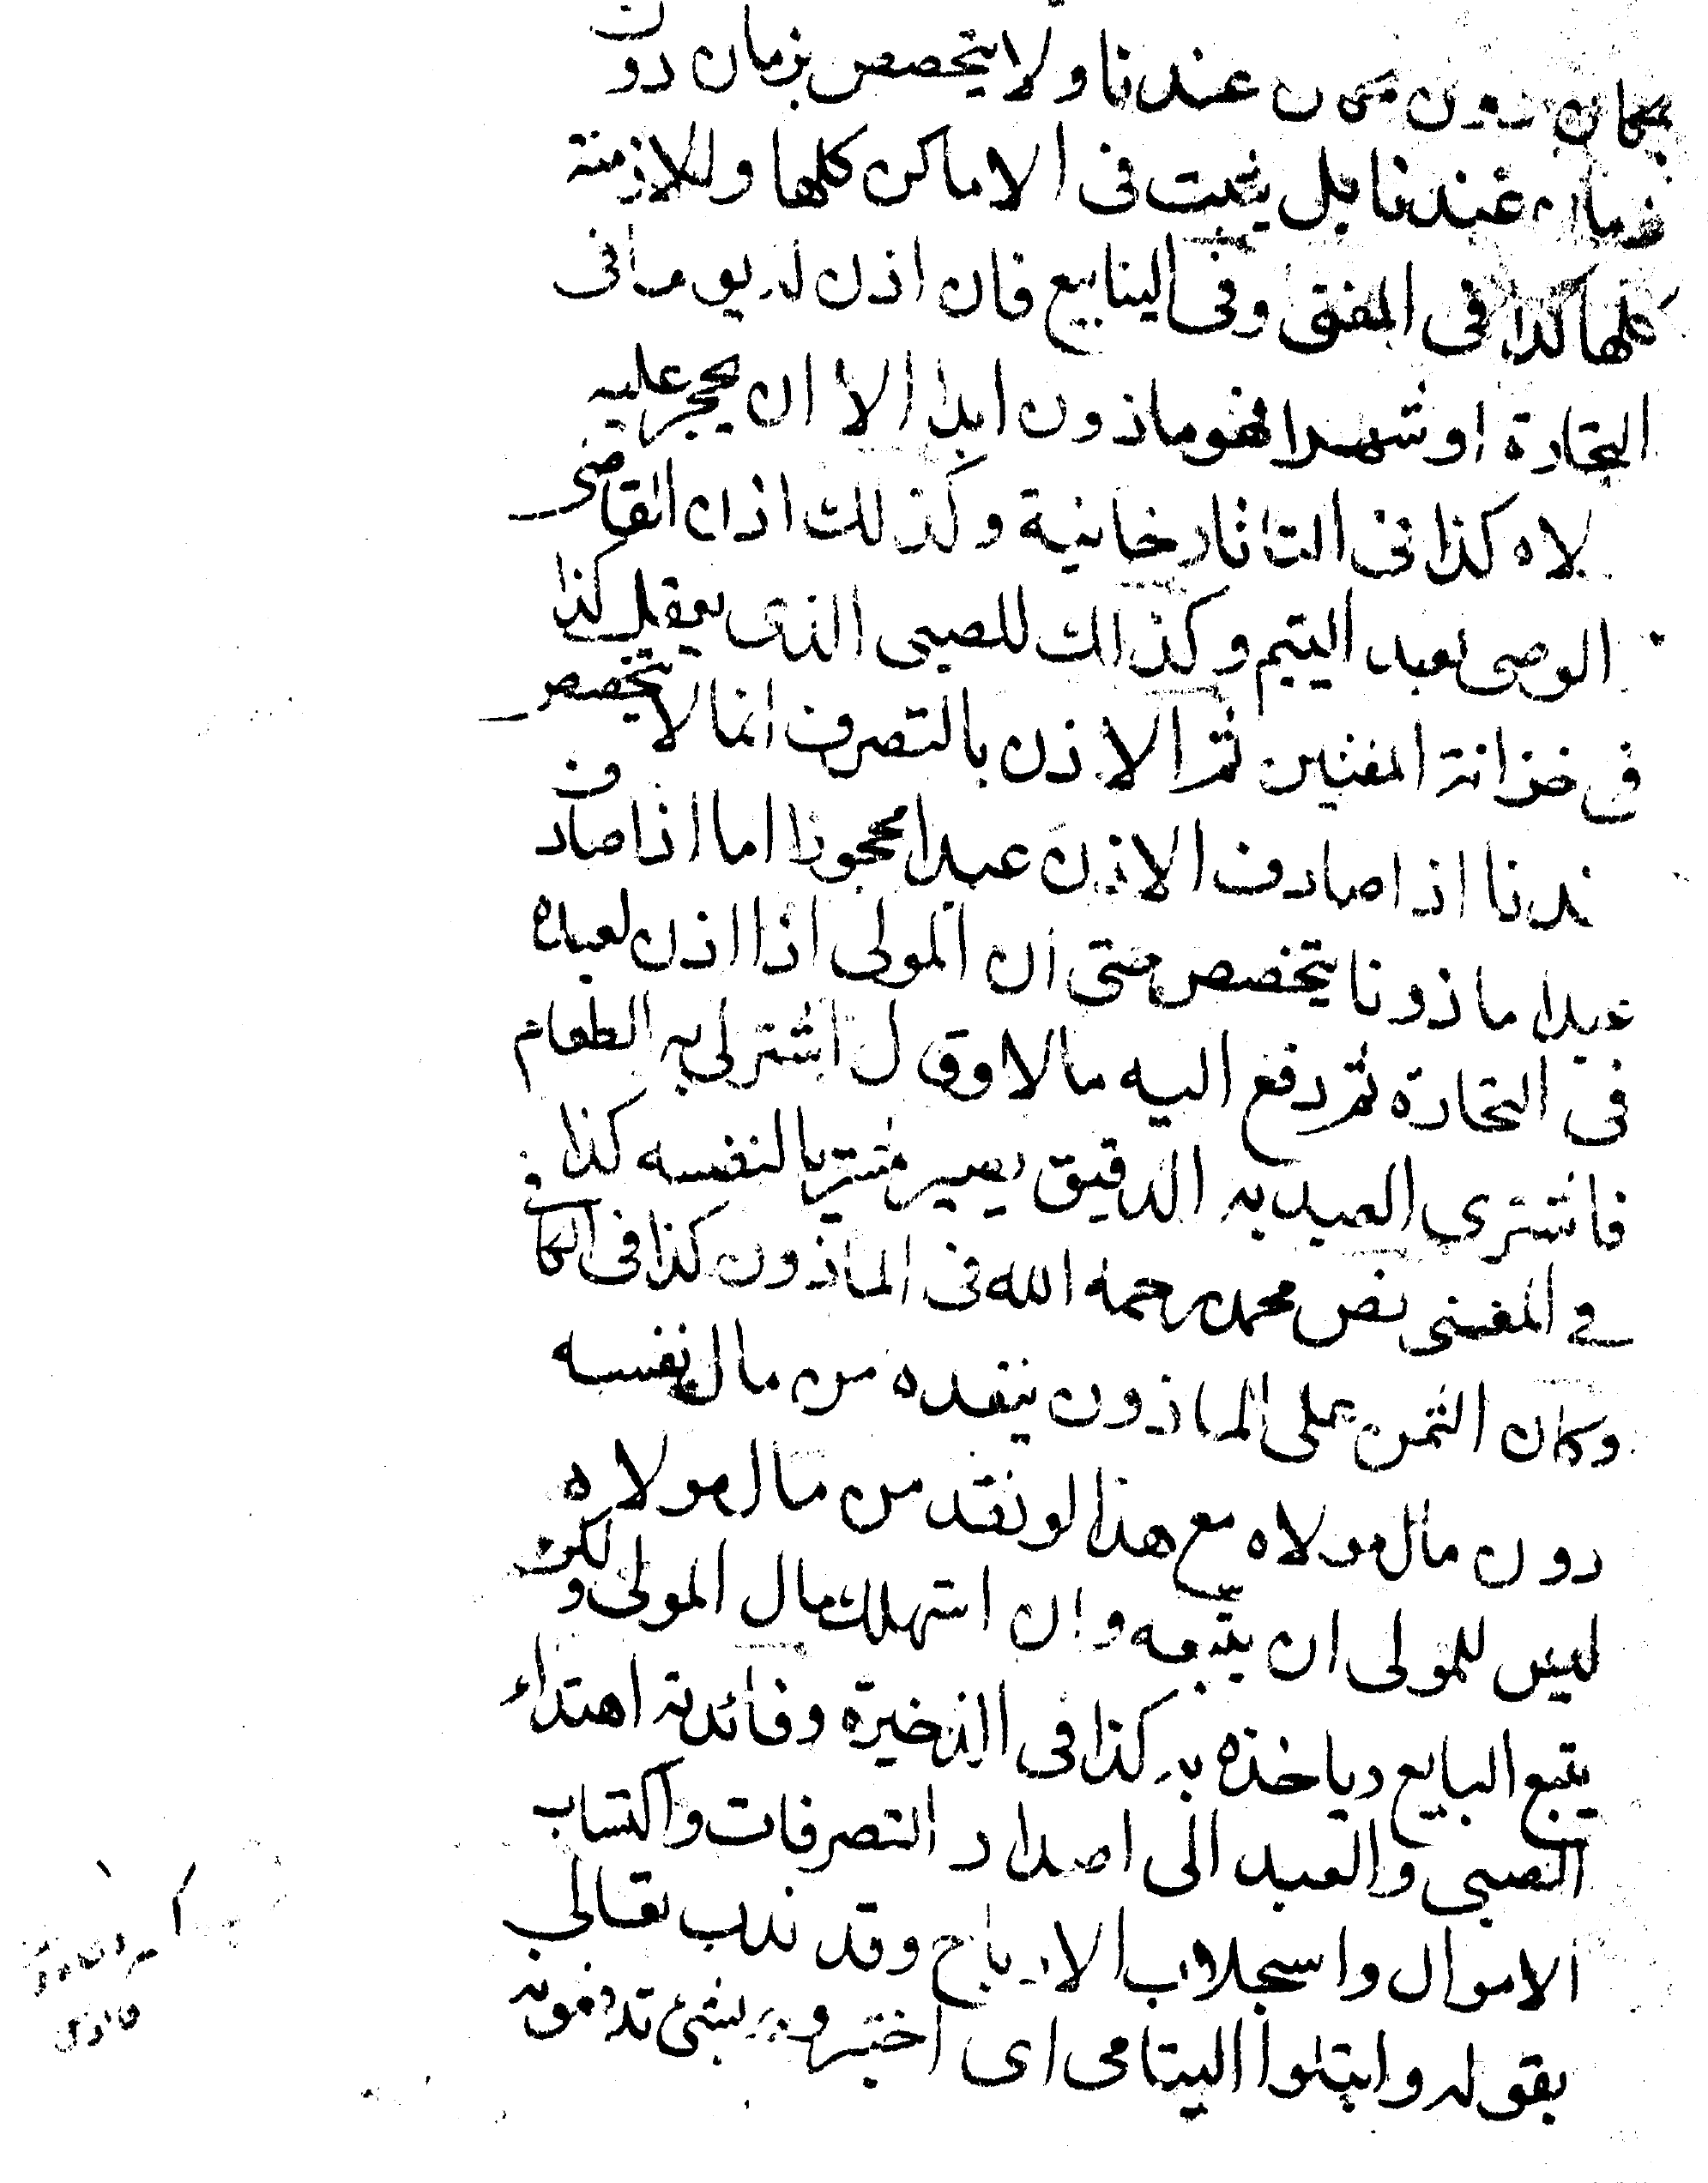 بمكان دون مكان عندنا ولا يتخصص بزمان دون
زمان عندنا بل يثبت فى الاماكن كلها وللازمنة
كلها كذا فى المغنى وفى الينابيع فان اذن له يوما فى
التجارة او شهرا فهو ماذون ابدا الا ان يحجر عليه
لاه كذا فى التاتارخانية وكذلك اذن القاضى
الوصى لعبد اليتيم وكذلك للصبى الذى يعقل كذا
فى خزانة المفتين ثم الاذن بالتصرف انما لا يتخصص
ندنا اذا صادف الاذن عبدا محجورا اما اذا صادف
عبدا ماذونا يتخصص حتى ان المولى اذا اذن لعبده
فى التجارة ثم دفع اليه مالا وقال اشتر لى به الطعام
فاشترى العبد به الدقيق يصير مشتريا لنفسه كذا فى
فے المغنى نص محمد رحمه الله فى الماذون كذا فى الكا
وكان الثمن على الماذون ينقده من مال نفسه
دون مال مولاه مع هذا لو نقد من مال مولاه
ليس للمولى ان يتبعه وان استهلك مال المولى ولكن
يتبع البايع وياخذه به كذا فى الذخيرة وفائدته اهتداء
الصبى والعبد الى اصدار التصرفات واكتساب
الاموال واسجلاب الارباح وقد ندب تعالى
بقوله وابتلوا اليتامى اى اختبروهم بشئ تدفعونه